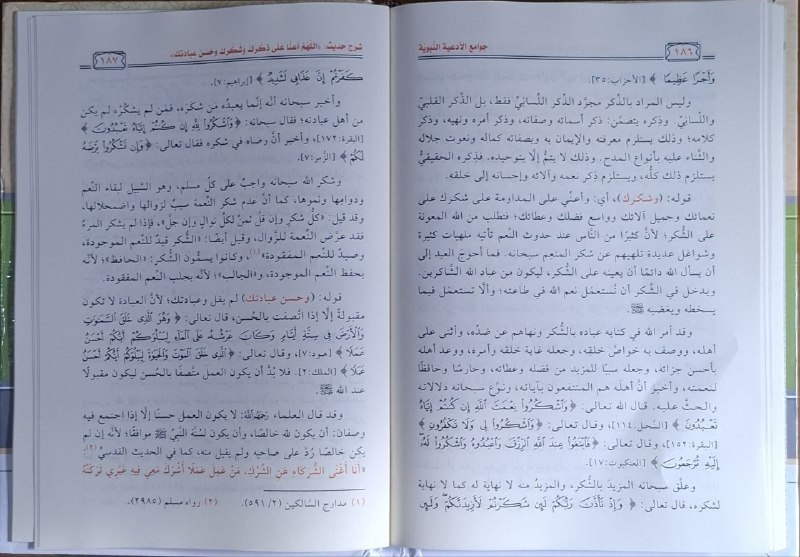 جوامع الأدعية النبوية
١٨٦
وَأَجْرًا عَظِيمًا ﴾ [الأحزاب:٣٥].
وليس المراد بالذّكر مجرّد الذّكر اللّسانيّ فقط، بل الذّكر القلبيّ
واللّسانيّ. وذكره يتضمّن: ذكر أسمائه وصفاته، وذكر أمره ونهيه، وذكر
كلامه؛ وذلك يستلزم معرفته والإيمان به وبصفاته كماله ونعوت جلاله
والثّناء عليه بأنواع المدح. وذلك لا يتمّ إلّا بتوحيده. فذِكره الحقيقيُّ
يستلزم ذلك كلّه، ويستلزم ذكر نعمه وآلائه وإحسانه إلى خلقه.
قوله: (وشكرك)، أي: وأعنّي على المداومة على شكرك على
نعمائك وجميل آلائك وواسع فضلك وعطائك؛ فتطلب من الله المعونة
على الشّكر؛ لأنَّ كثيرًا من النّاس عند حدوث النّعم تأتيه ملهيات كثيرة
وشواغل عديدة تلهيهم عن شكر المنعم سبحانه. فما أحوجَ العبد إلى
أن يسأل الله دائمًا أن يعينه على الشّكر، ليكون من عباد الله الشّاكرين.
ويدخل في الشّكر أن تُستعمَل نعم الله في طاعته؛ وألّا تستعمَل فيما
يسخطه ويغضبه ﷻ.
وقد أمر الله في كتابه عباده بالشّكر ونهاهم عن ضدّه، وأثنى على
أهله، ووصف به خواصَّ خلقِه، وجعله غاية خلقه وأمره، ووعد أهله
بأحسن جزائه، وجعله سببًا للمزيد من فضله وعطائه، وحارسًا وحافظًا
لنعمته، وأخبر أنَّ أهله هم المنتفعون بآياته، ونوَّع سبحانه دلالاته
والحثّ عليه. قال الله تعالى: ﴿ وَاشْكُرُوا نِعْمَتَ اللَّهِ إِن كُنتُمْ إِيَّاهُ
تَعْبُدُونَ ﴾ [النّحل:١١٤]، وقال تعالى: ﴿ وَاشْكُرُوا لِي وَلَا تَكْفُرُونِ ﴾
[البقرة:١٥٢]، وقال تعالى: ﴿ فَابْتَغُوا عِندَ اللَّهِ الرِّزْقَ وَاعْبُدُوهُ وَاشْكُرُوا لَهُ
إِلَيْهِ تُرْجَعُونَ ﴾ [العنكبوت:١٧].
وعلّق سبحانه المزيد بالشّكر، والمزيدُ منه لا نهاية له كما لا نهاية
لشكره، قال تعالى: ﴿ وَإِذْ تَأَذَّنَ رَبُّكُمْ لَئِن شَكَرْتُمْ لَأَزِيدَنَّكُمْ وَلَئِن
شرح حديث: «اللهم أعنا على ذكرك وشكرك وحسن عبادتك»
١٨٧
كَفَرْتُمْ إِنَّ عَذَابِي لَشَدِيدٌ ﴾ [إبراهيم:٧].
وأخبر سبحانه أنَّه إنَّما يعبدُه من شكره، فمَن لم يشكُرْه لم يكن
من أهل عبادته؛ فقال سبحانه: ﴿ وَاشْكُرُوا لِلَّهِ إِن كُنتُمْ إِيَّاهُ تَعْبُدُونَ ﴾
[البقرة:١٧٢]، وأخبر أنَّ رضاه في شكره فقال تعالى: ﴿ وَإِن تَشْكُرُوا يَرْضَهُ
لَكُمْ ﴾ [الزّمر:٧].
وشكر الله سبحانه واجبٌ على كلّ مسلم، وهو السّبيل لبقاء النّعم
ودوامها ونموها، كما أنَّ عدم شكر النّعمة سببٌ لزوالها واضمحلالها،
وقد قيل: «كلُّ شكرٍ وإن قلَّ ثمنٌ لكلّ نوالٍ وإن جلَّ»، فإذا لم يشكر المرءُ
فقد عرَّض النّعمةَ للزّوال، وقيل أيضًا: «الشّكر قيدٌ للنّعم الموجودة،
وصيدٌ للنّعم المفقودة»(١)، وكانوا يسمُّون الشّكر: «الحافظ»؛ لأنَّه
يحفظ النّعم الموجودة، و«الجالب»؛ لأنَّه يجلب النّعم المفقودة.
قوله: (وحسن عبادتك) لم يقل وعبادتك؛ لأنَّ العبادة لا تكون
مقبولةً إلّا إذا اتَّصفت بالحُسن، قال تعالى: ﴿ وَهُوَ الَّذِي خَلَقَ السَّمَاوَاتِ
وَالْأَرْضَ فِي سِتَّةِ أَيَّامٍ وَكَانَ عَرْشُهُ عَلَى الْمَاءِ لِيَبْلُوَكُمْ أَيُّكُمْ أَحْسَنُ
عَمَلًا ﴾ [هود:٧]، وقال تعالى: ﴿ الَّذِي خَلَقَ الْمَوْتَ وَالْحَيَاةَ لِيَبْلُوَكُمْ أَيُّكُمْ أَحْسَنُ
عَمَلًا ﴾ [الملك:٢]. فلا بُدَّ أن يكون العمل متَّصفًا بالحُسن ليكون مقبولًا
عند الله ﷻ.
وقد قال العلماء رحمهم الله: لا يكون العمل حسنًا إلّا إذا اجتمع فيه
وصفان: أن يكون لله خالصًا، وأن يكون لسُنّة النّبيّ ﷺ موافقًا؛ لأنَّه إن لم
يكن خالصًا رُدَّ على صاحبه ولم يقبل منه، كما في الحديث القدسيّ(٢):
«أَنَا أَغْنَى الشُّرَكَاءِ عَنِ الشِّرْكِ، مَنْ عَمِلَ عَمَلًا أَشْرَكَ مَعِي فِيهِ غَيْرِي تَرَكْتُهُ
(١) مدارج السالكين (٢/ ٥٩١). (٢) رواه مسلم (٢٩٨٥).